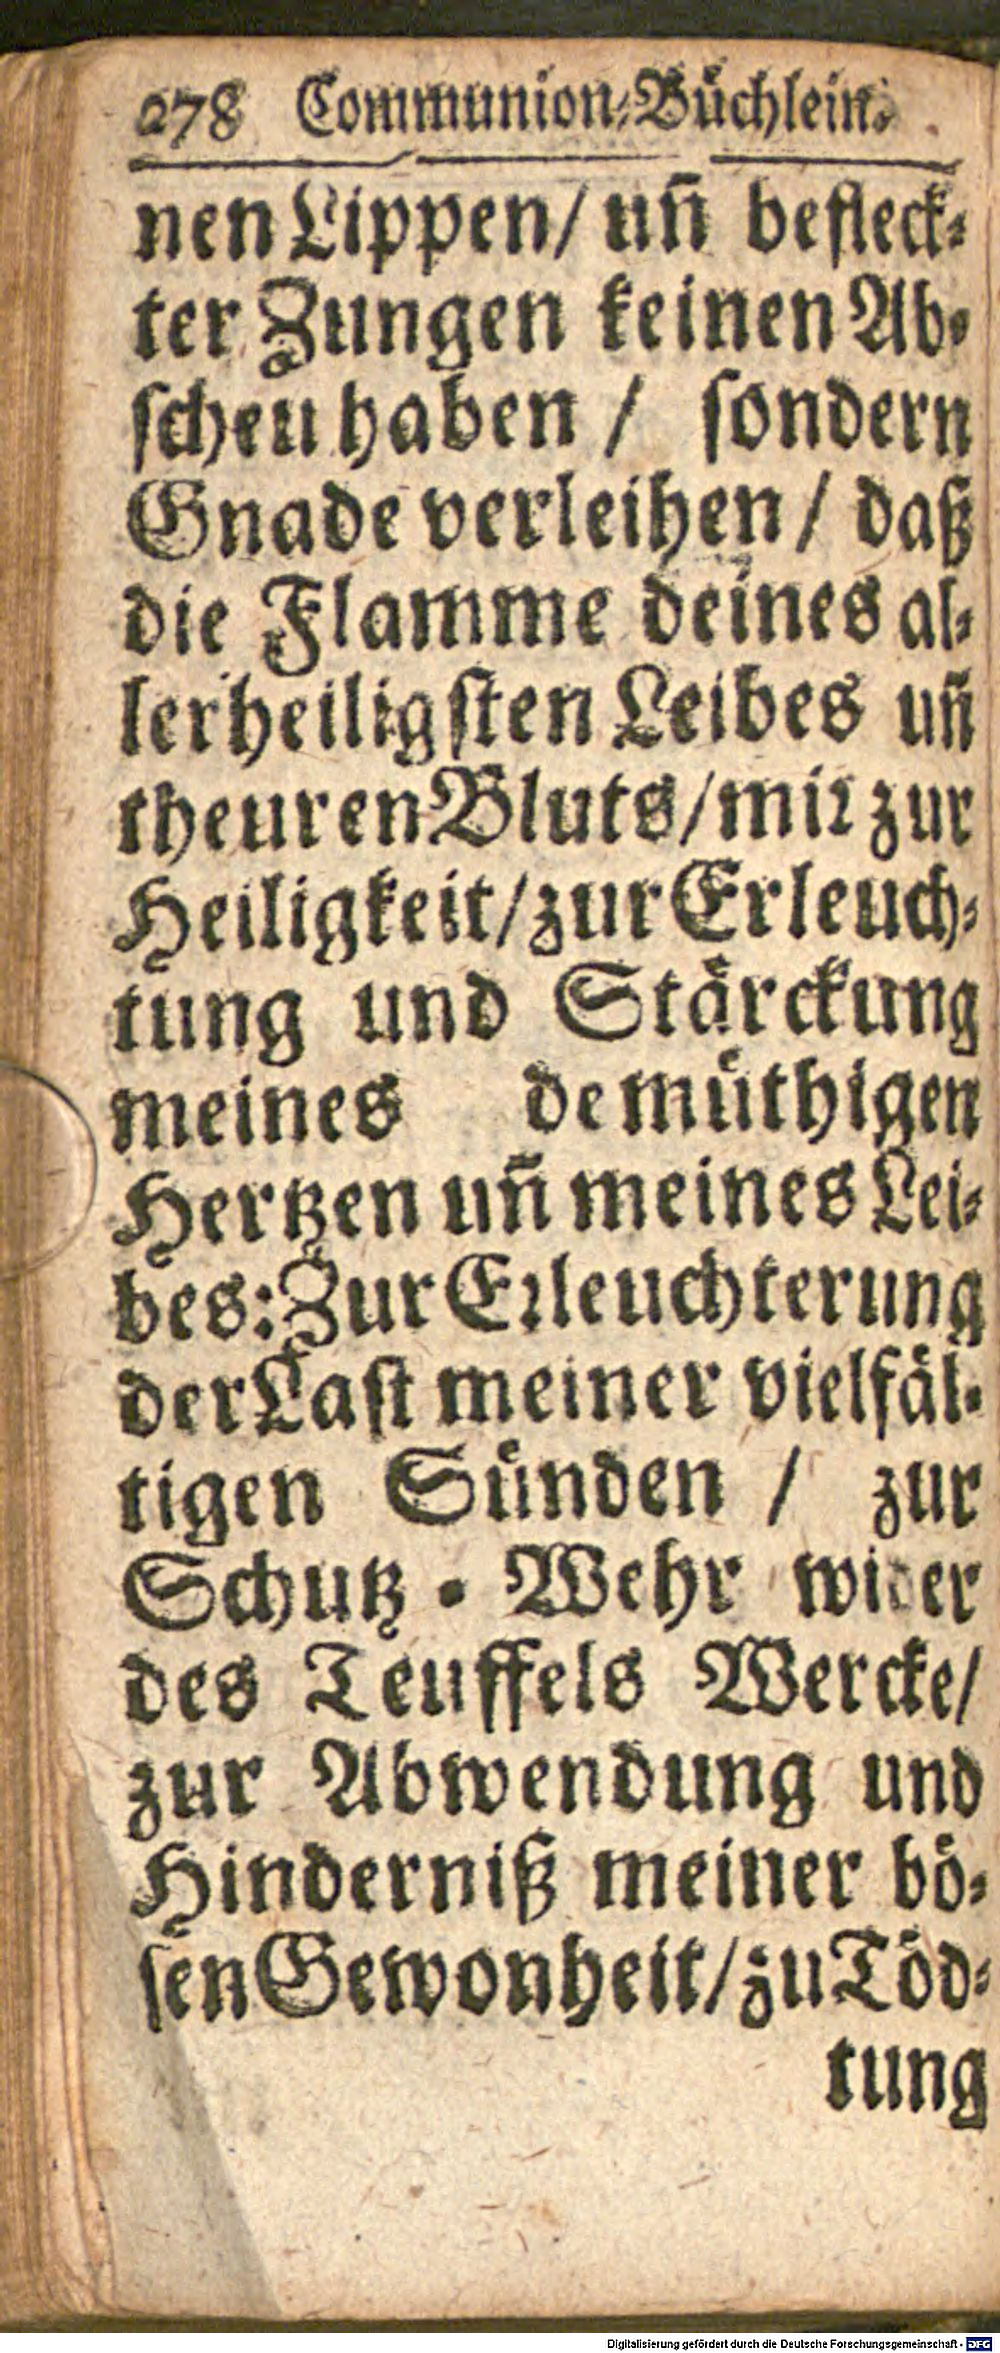 278 Communion-Büchlein.
nen Lippen / uñ befleck-
ter Zungen keinen Ab-
scheu haben / sondern
Gnade verleihen / daß
die Flamme deines al-
lerheiligsten Leibes uñ
theuren Bluts / mir zur
Heiligkeit / zur Erleuch-
tung und Stärckung
meines demüthigen
Hertzen uñ meines Lei-
bes: Zur Erleuchterung
der Last meiner vielfäl-
tigen Sünden / zur
Schutz-Wehr wider
des Teuffels Wercke /
zur Abwendung und
Hinderniß meiner bö-
sen Gewonheit / zu Töd-
tung
Digitalisierung gefördert durch die Deutsche Forschungsgemeinschaft - DFG